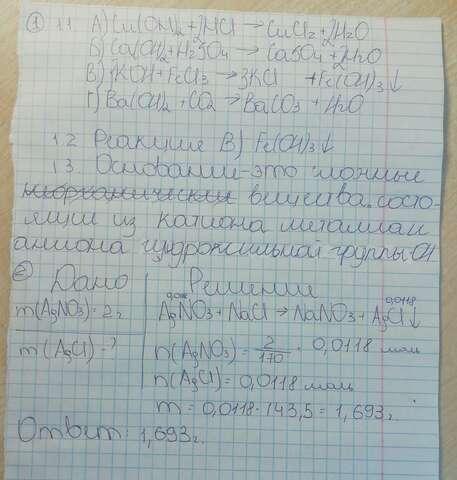 ① 1.1. А) Cu(OH)₂+2HCl → CuCl₂+2H₂O
Б) Ca(OH)₂+H₂SO₄ → CaSO₄+2H₂O
В) 3KOH+FeCl₃ → 3KCl +Fe(OH)₃↓
Г) Ba(OH)₂+CO₂ → BaCO₃ + H₂O
1.2. Реакция В) Fe(OH)₃↓
1.3. Основания-это сложные
неорганические вещества, состо-
ящии из катиона металла и
аниона гидроксильной группы-OH
② Дано Решение
0,0118
m(AgNO₃)=2г AgNO₃+NaCl → NaNO₃+AgCl↓
m(AgCl)-? n(AgNO₃)=2/170=0,0118 моль
n(AgCl)=0,0118 моль
m=0,0118·143,5=1,693г.
Ответ: 1,693г.